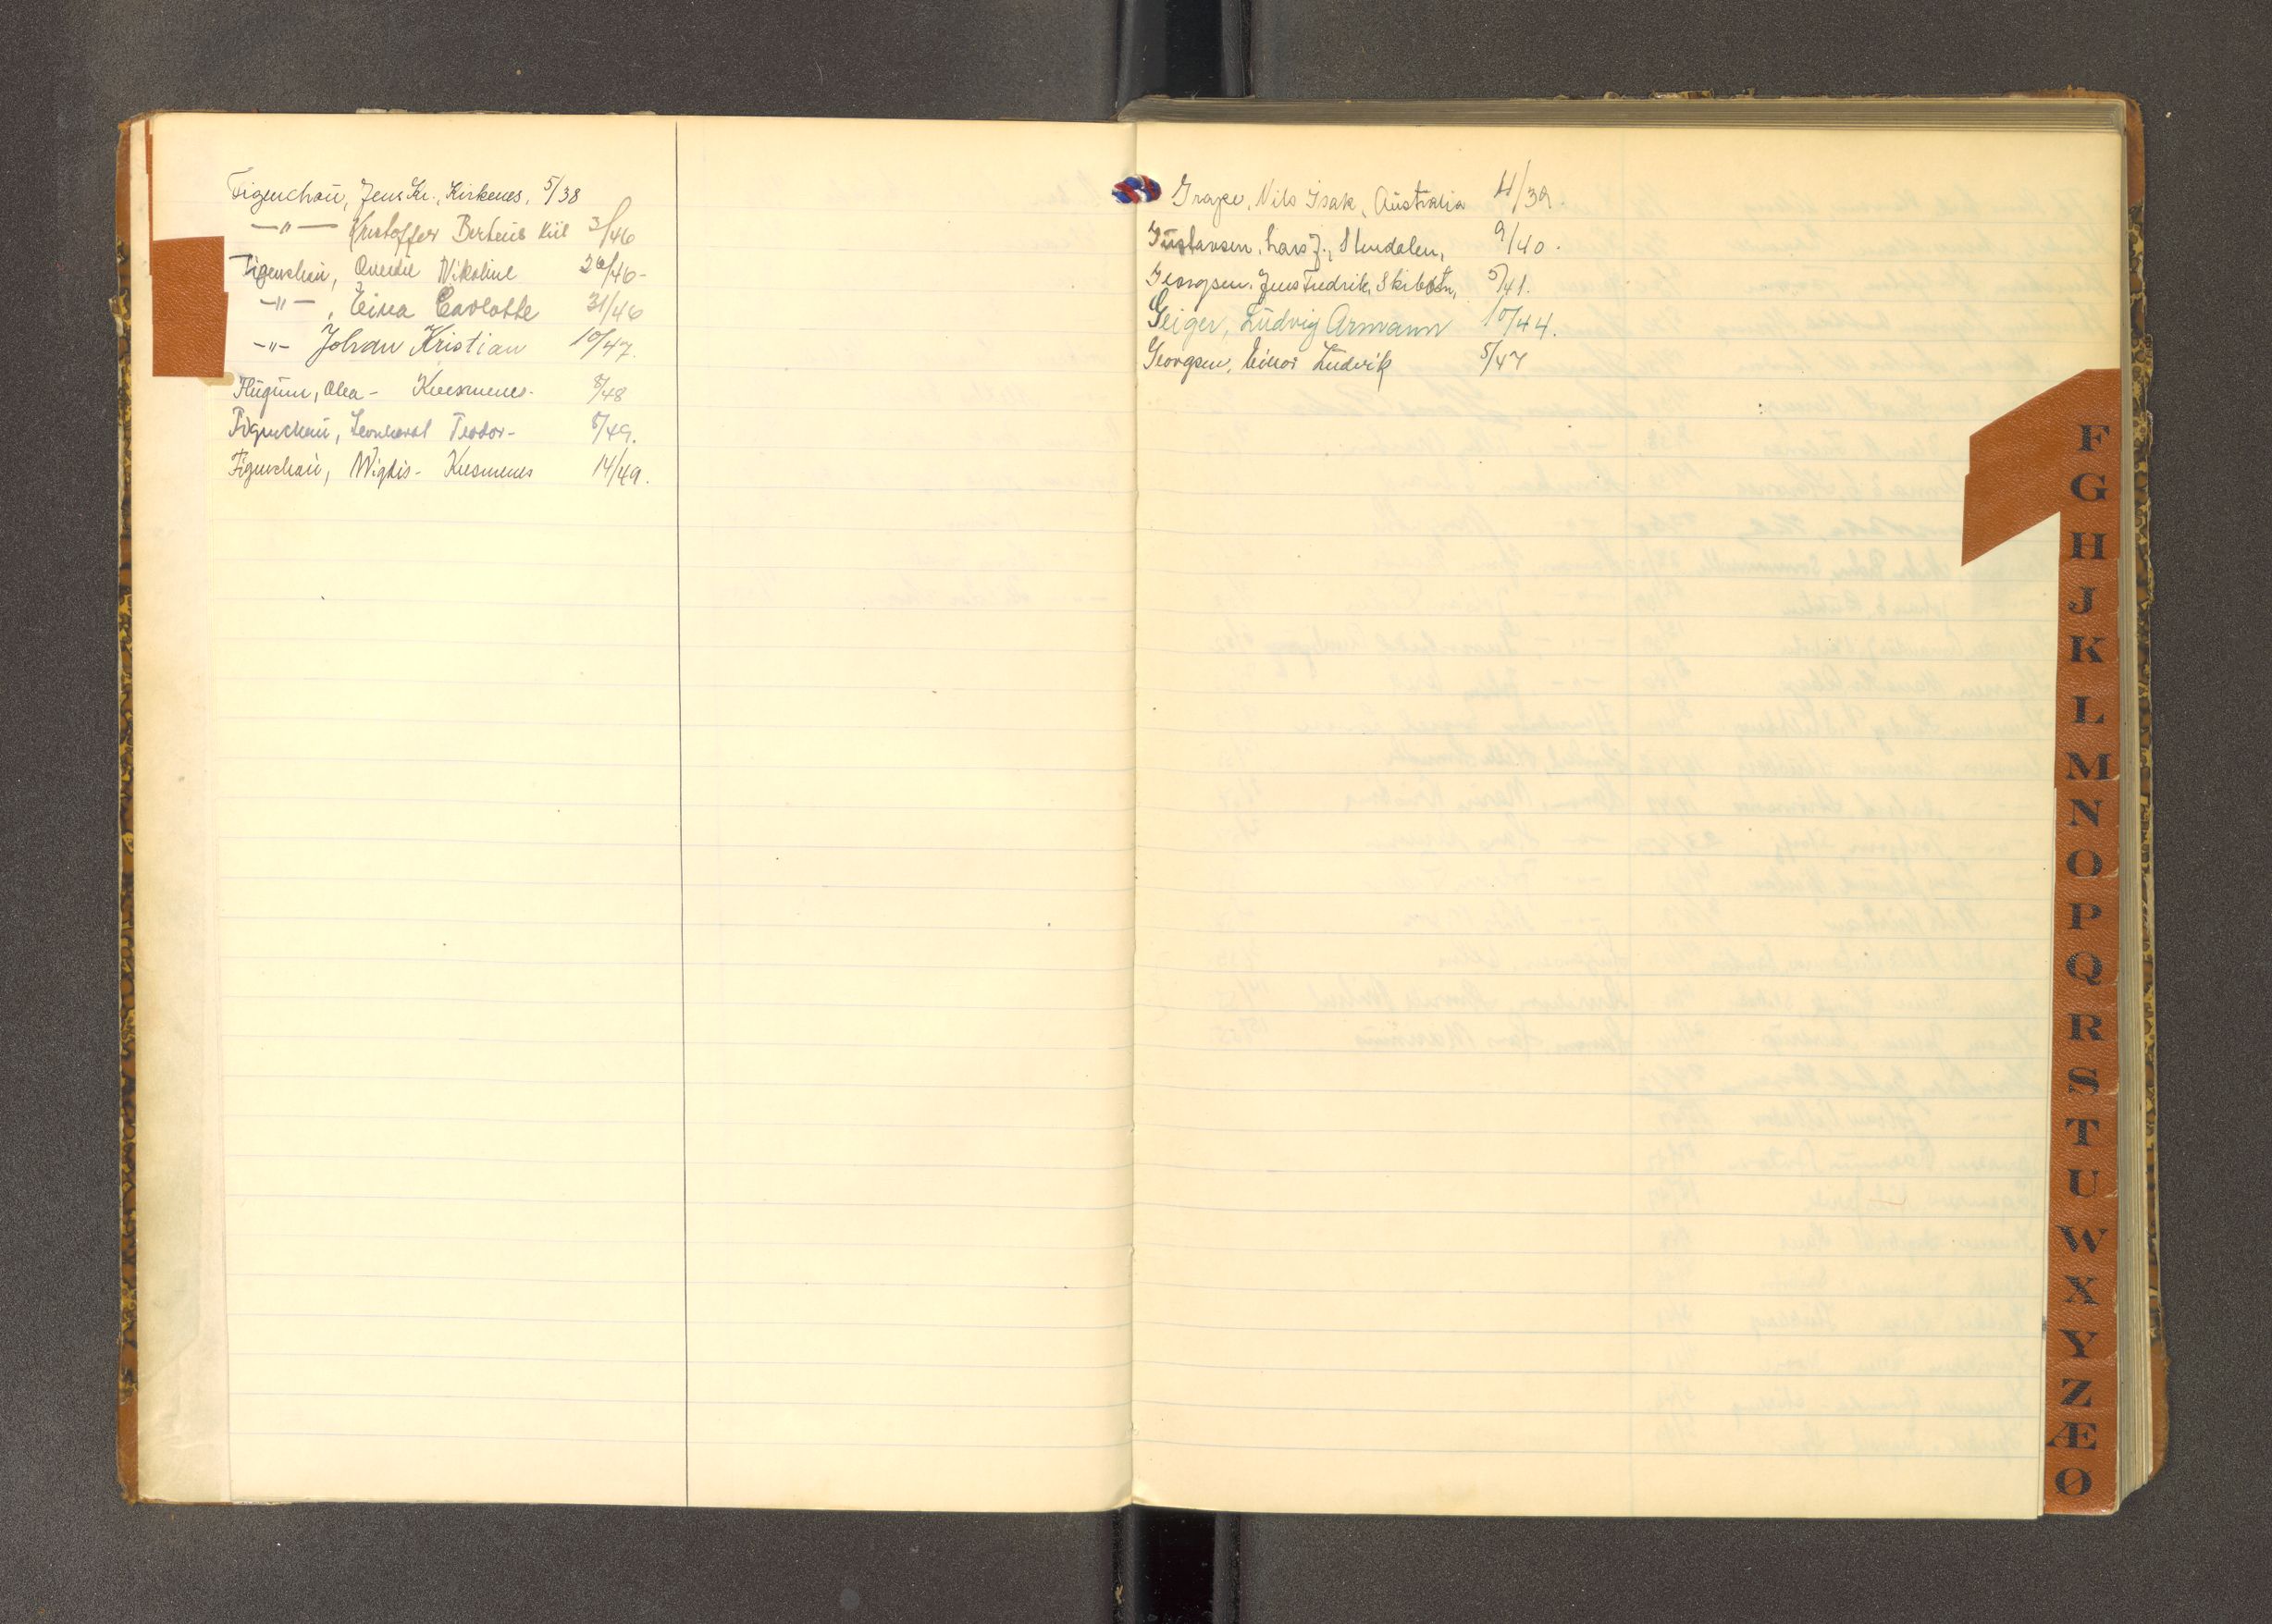 Figenchaü, Jens Kr., Kirkenes, 5/38
—"— Kristoffer Berteüs Kiil 3/46
Figenschaü, Nikoline 26/46-
-"-, Eina Carlotte 31/46
-"- Johan Kristian 10/47.
Hügüm, Olea - Kvesmenes. 8/48
Figenchaü, Leonhard Teodor- 8/49.
Figenschaü, Wigdis- Kvesmenes 14/49.
Grape, Nils Isak, Aüstralia 11/39.
Güstavsen, Lars J., Slendalen, 9/40.
Georgsen, Jens Fredrik, Skibotn, 5/41.
Geiger, Lüdvig Armann 10/44.
Georgsen, Einar Lüdvik 5/47
F
G
H
J
K
L
M
N
O
P
Q
R
S
T
U
W
X
Y
Z
Æ
Ø